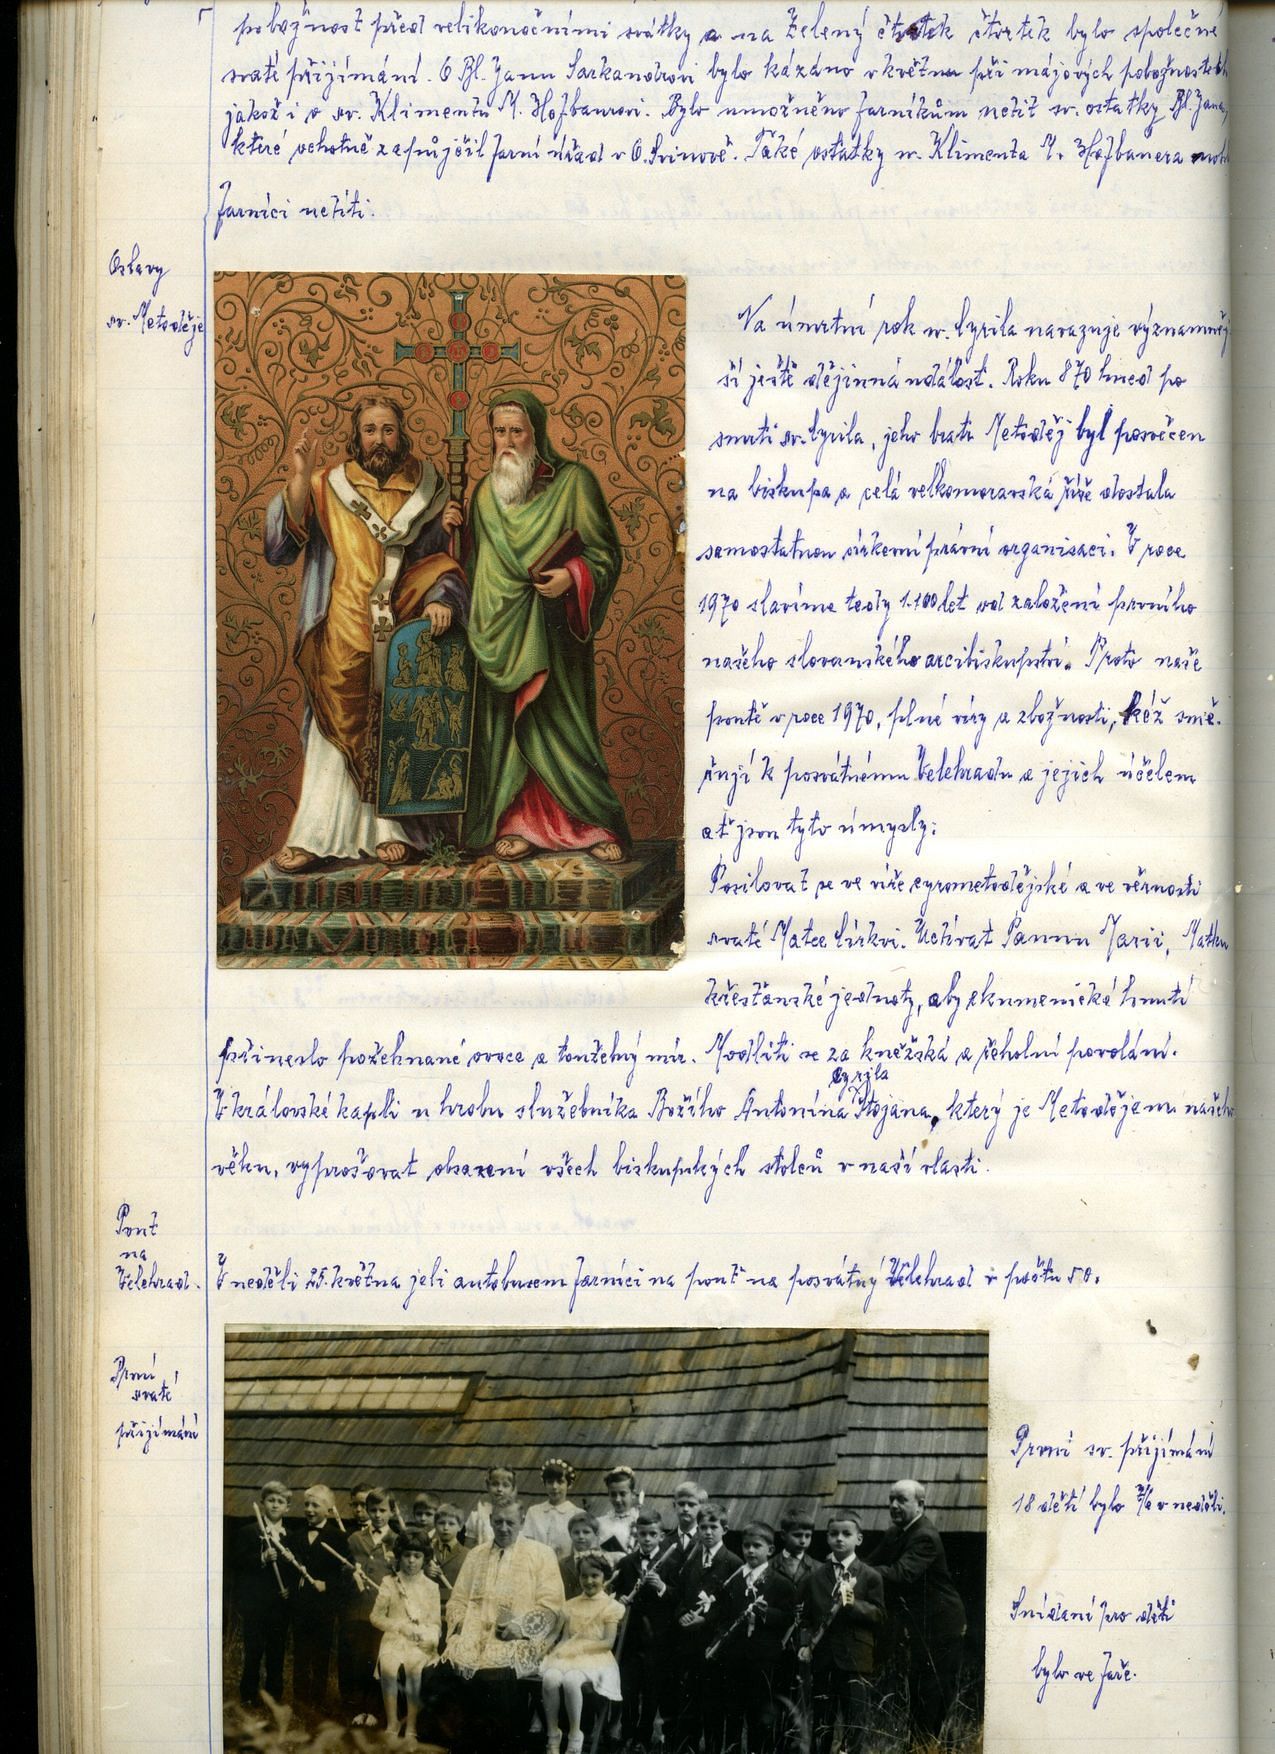 pobožnost před velikonočními svátky a na Zelený čtvrtek bylo společné
svaté přijímání. O Bl. Janu Sarkandrovi bylo kázáno v květnu při májových pobožnostech
jakož i o sv. Klimentu M. Hofbaurovi. Bylo umožněno farníkům uctít sv. ostatky Bl. Jana,
které ochotně zapůjčil farní úřad v O. Svinově. Také ostatky sv. Klimenta M. Hofbauera mohli
farníci uctíti.
Oslavy
sv. Metoděje
Na úmrtní rok sv. Cyrila navazuje významněj
ší ještě dějinná událost. Roku 870 hned po
smrti sv. Cyrila, jeho bratr Metoděj byl posvěcen
na biskupa a celá velkomoravská říše dostala
samostatnou církevní právní organisaci. V roce
1970 slavíme tedy 1.100 let od založení prvního
našeho slovanského arcibiskupství. Proto naše
poutě v roce 1970, plné víry a zbožnosti, kéž smě-
řují k posvátnému Velehradu a jejich účelem
ať jsou tyto úmysly:
Posilovat se ve víře cyrometodějské a ve věrnosti
svaté Matce Církvi. Uctívat Pannu Marii, Matku
křesťanské jednoty, aby ekumenické hnutí
přineslo požehnané ovoce a toužebný mír. Modliti se za kněžská a řeholní povolání.
Cyrila
V královské kapli u hrobu služebníka Božího Antonína Stojana, který je Metodějem našeho
věku, vyprošovat obsazení všech biskupských stolců v naší vlasti.
Pouť
na
Velehrad.
V neděli 25. května jeli autobusem farníci na pouť na posvátný Velehrad v počtu 50.
První
svaté
přijímání
První sv. přijímání
18 dětí bylo v neděli.
Snídaní pro děti
bylo ve faře.